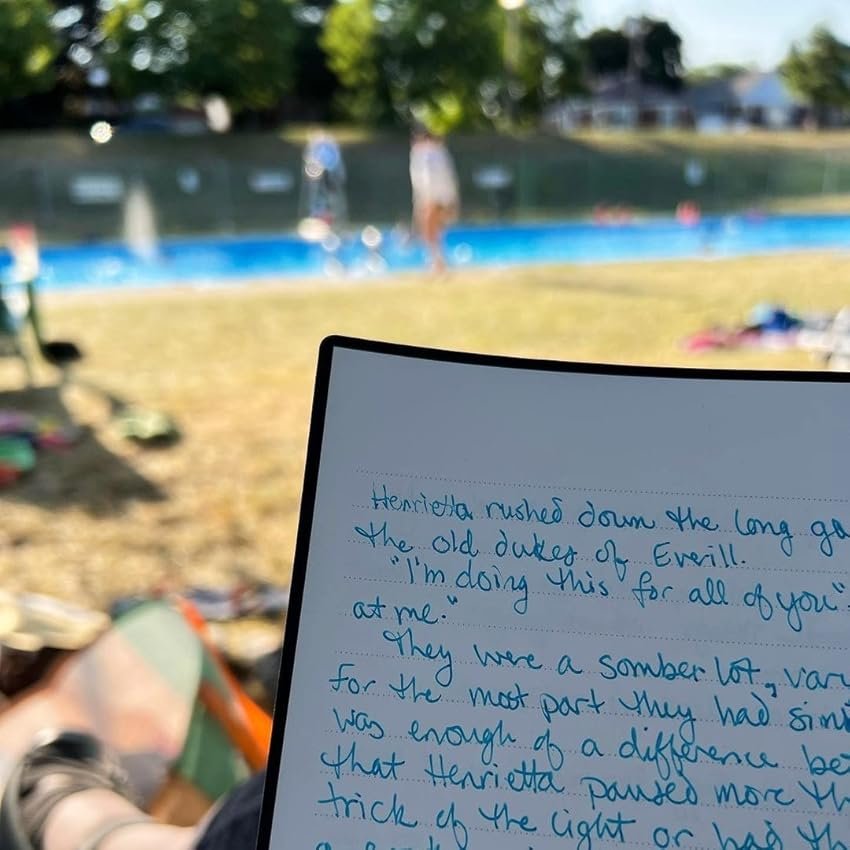 Henrietta rushed down the long ga
the old dukes of Everill.
"I'm doing this for all of you"
at me."
They were a somber lot, vary
for the most part they had simi
was enough of a difference be
that Henrietta paused more th
trick of the light or had th